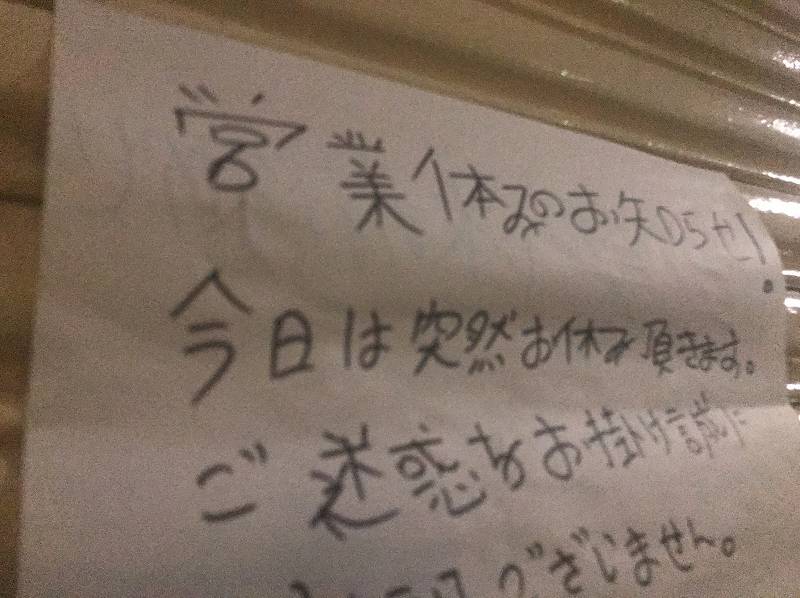 営業休みのお知らせ!
今日は突然お休み頂きます。
ご迷惑をお掛け誠に
ございません。